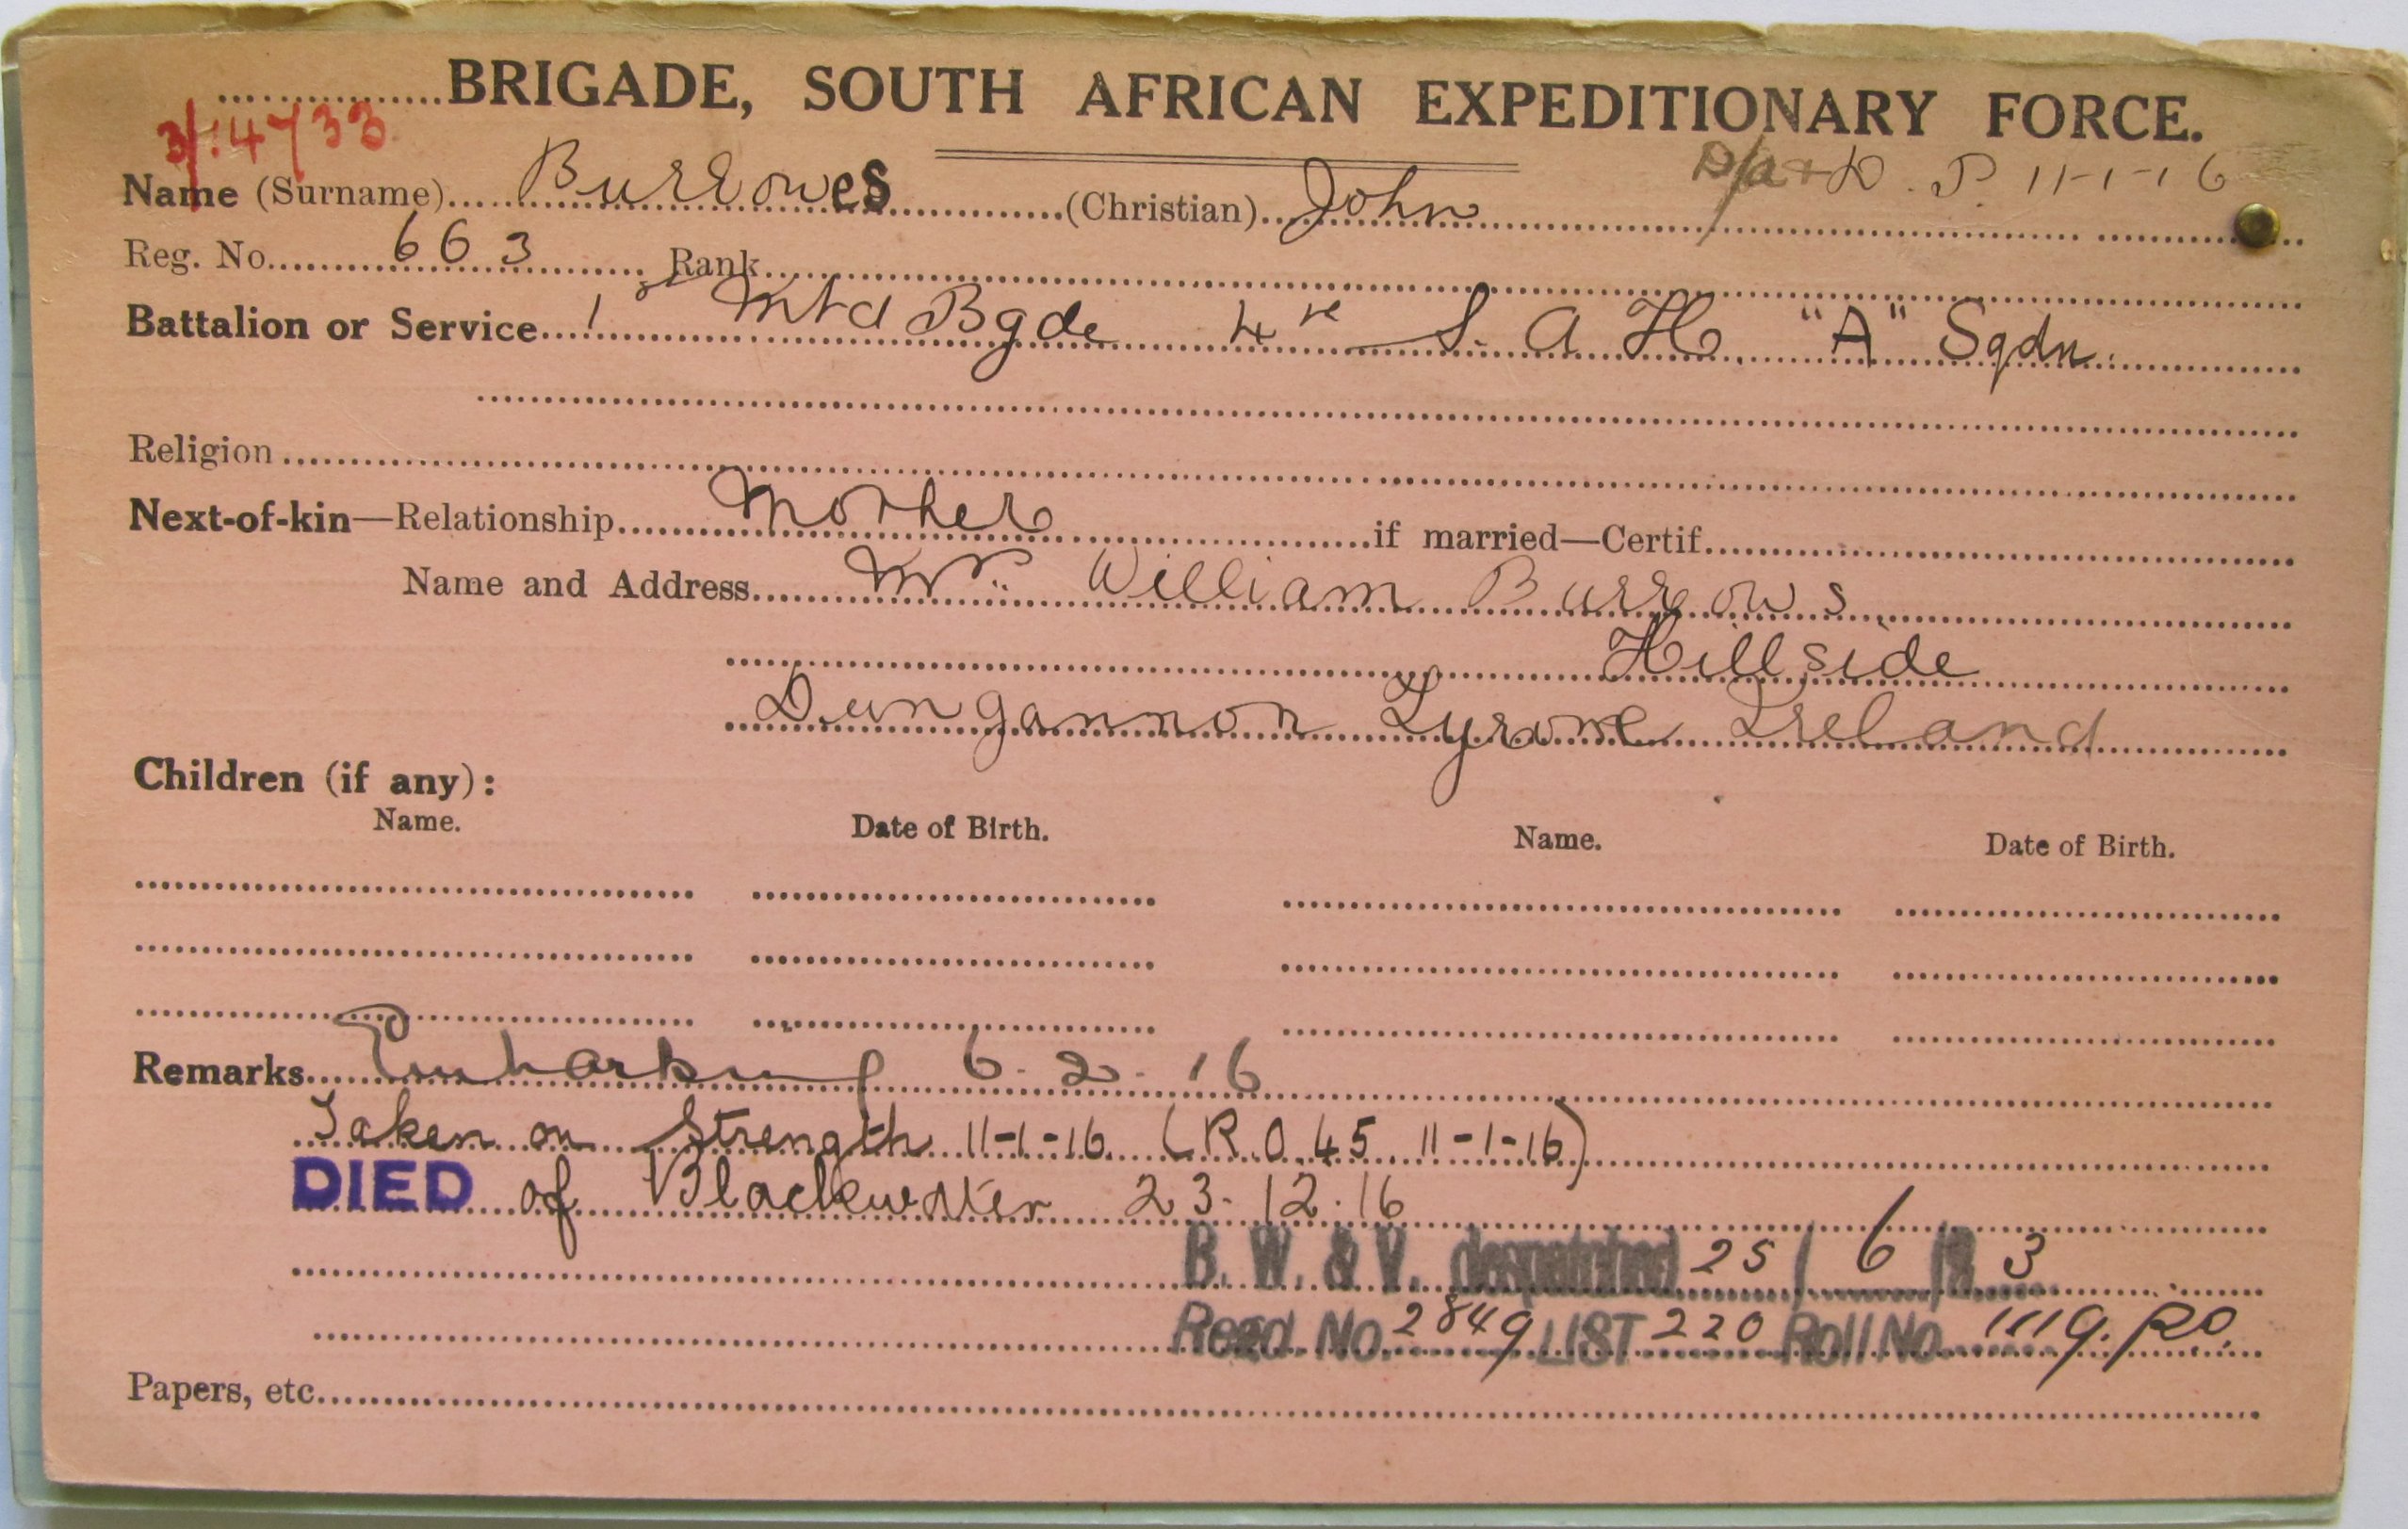 BRIGADE, SOUTH AFRICAN EXPEDITIONARY FORCE.
3/:4733
D/a + D. P 11-1-16
Name (Surname) Burrowes (Christian) John
Reg. No. 663 Rank
Battalion or Service 1st Mtd Bgde 4th S. A H. "A" Sqdn.
Religion
Next-of-kin—Relationship Mother if married—Certif.
Name and Address Mrs. William Burrows
Hillside
Dungannon Tyrone Ireland
Children (if any):
Name. Date of Birth. Name. Date of Birth.
Remarks Embarking 6.2.16
Taken on Strength 11-1-16 (R.O.45 11-1-16)
DIED of Blackwater 23.12.16
B. W. & V. despatched 25/6/ 3
Regd. No. 2849 LIST 220 Roll No. 1119. RO.
Papers, etc.